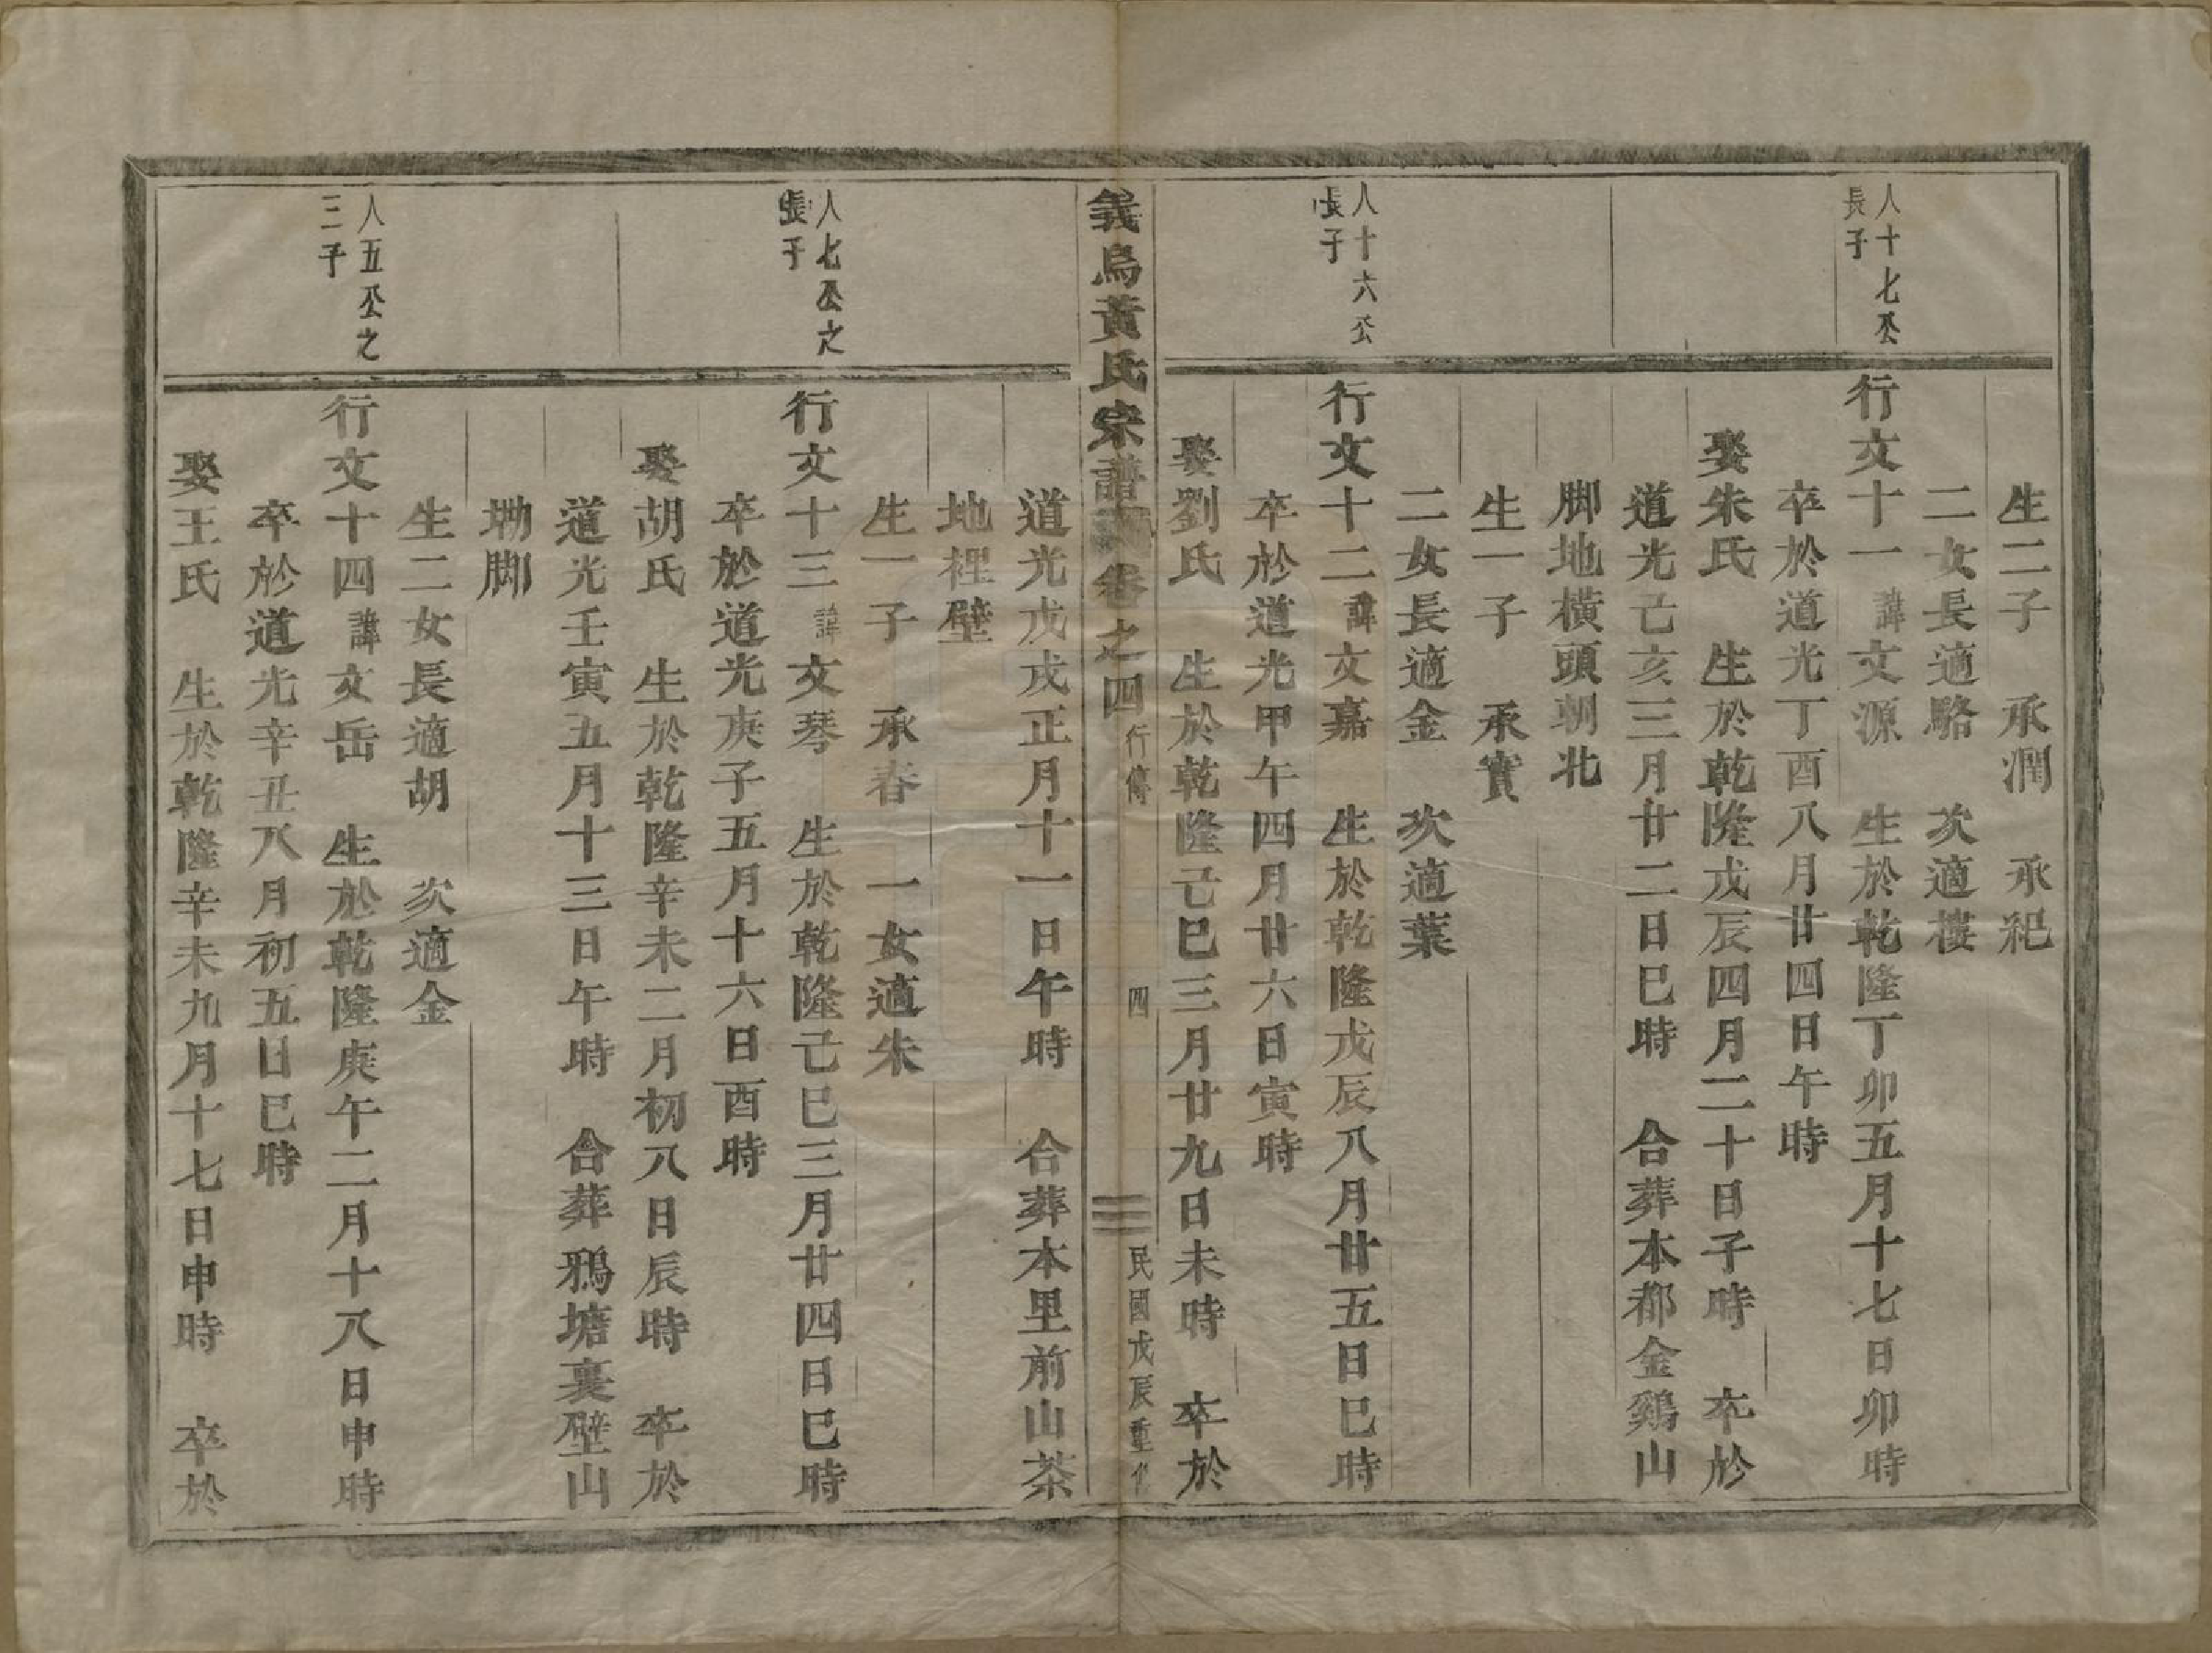 生二子　承潤　承紀
二女長適駱　次適樓
人十七公
長子
行文十一諱文源　生於乾隆丁卯五月十七日卯時
卒於道光丁酉八月廿四日午時
娶朱氏　生於乾隆戊辰四月二十日子時　卒於
道光己亥三月廿二日巳時　合葬本都金鷄山
脚地橫頭朝北
生一子　承實
二女長適金　次適葉
人十六公
長子
行文十二諱文嘉　生於乾隆戊辰八月廿五日巳時
卒於道光甲午四月廿六日寅時
娶劉氏　生於乾隆己巳三月廿九日未時　卒於
義烏黃氏宗譜　卷之四　行傳　四　民國戊辰重修
道光戊戌正月十一日午時　合葬本里前山茶
地裡壁
生一子　承春　一女適朱
人七公之
長子
行文十三諱文琴　生於乾隆己巳三月廿四日巳時
卒於道光庚子五月十六日酉時
娶胡氏　生於乾隆辛未二月初八日辰時　卒於
道光壬寅五月十三日午時　合葬鴉塘裏壁山
坳脚
生二女長適胡　次適金
人五公之
三子
行文十四諱文岳　生於乾隆庚午二月十八日申時
卒於道光辛丑八月初五日巳時
娶王氏　生於乾隆辛未九月十七日申時　卒於